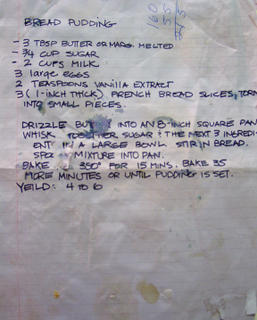 BREAD PUDDING
- 3 TBSP BUTTER OR MARG. MELTED
- 3/4 CUP SUGAR
- 2 CUPS MILK
3 large eggs
2 TEASPOONS Vanilla EXTRACT
3 (1-INCH THICK) FRENCH BREAD SLICES, TORN
INTO SMALL PIECES.
DRIZZLE INTO AN 8-INCH SQUARE PAN
WHISK TOGETHER SUGAR & THE NEXT 3 INGREDI-
ENT IN A LARGE BOWL. STIR IN BREAD.
MIXTURE INTO PAN.
BAKE 350° FOR 15 MINS. BAKE 35
MORE MINUTES OR UNTIL PUDDING IS SET.
YEILD: 4 TO 6